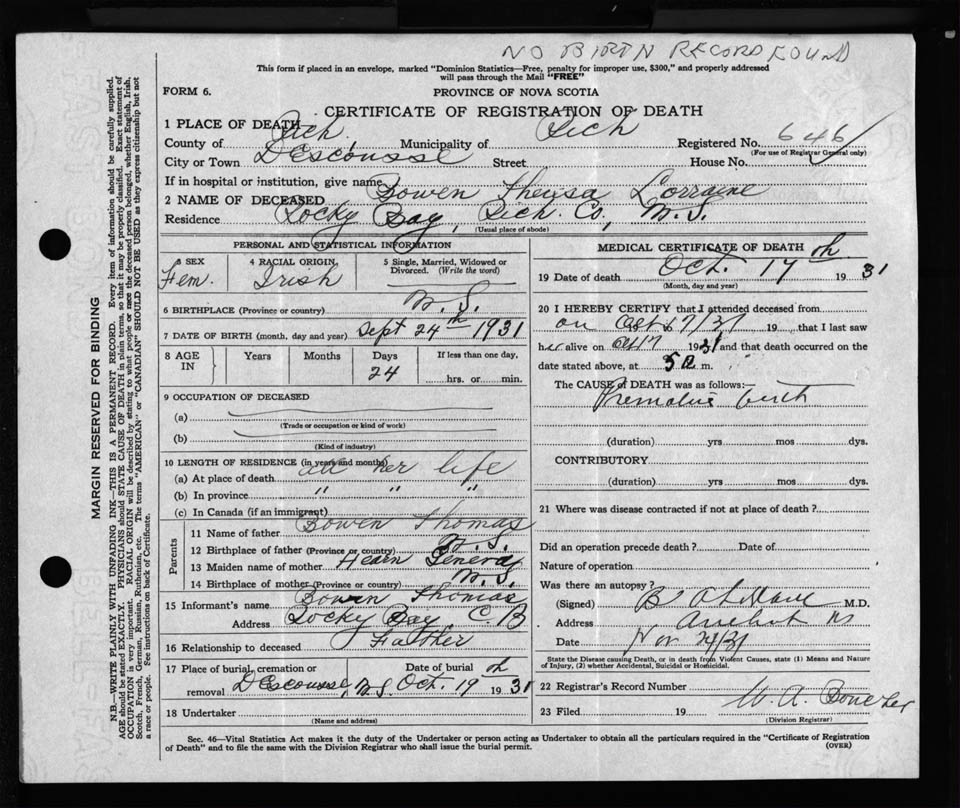 NO BIRTH RECORD FOUND
This form if placed in an envelope, marked "Dominion Statistics—Free, penalty for improper use, $300," and properly addressed
will pass through the Mail "FREE"
FORM 6.
PROVINCE OF NOVA SCOTIA
CERTIFICATE OF REGISTRATION OF DEATH
1 PLACE OF DEATH
County of Rich. Municipality of Rich Registered No. 646
(For use of Registrar General only)
City or Town D'Escousse Street House No.
If in hospital or institution, give name
2 NAME OF DECEASED Bowen Theresa Lorraine
Residence Rocky Bay, Rich. Co., N.S.
(Usual place of abode)
PERSONAL AND STATISTICAL INFORMATION
3 SEX Fem.
4 RACIAL ORIGIN Irish
5 Single, Married, Widowed or Divorced. (Write the word)
6 BIRTHPLACE (Province or country) N.S.
7 DATE OF BIRTH (month, day and year) Sept 24th 1931
8 AGE IN Years Months Days 24 If less than one day, hrs. or min.
9 OCCUPATION OF DECEASED
(a)
(Trade or occupation or kind of work)
(b)
(Kind of industry)
10 LENGTH OF RESIDENCE (in years and months)
(a) At place of death all her life
(b) In province " " "
(c) In Canada (if an immigrant)
Parents
11 Name of father Bowen Thomas
12 Birthplace of father (Province or country) N.S.
13 Maiden name of mother Hearn
14 Birthplace of mother (Province or country) N.S.
15 Informant's name Bowen Thomas
Address Rocky Bay, C.B
16 Relationship to deceased Father
17 Place of burial, cremation or removal D'Escousse, N.S. Date of burial Oct. 19th 1931
18 Undertaker
(Name and address)
MEDICAL CERTIFICATE OF DEATH
19 Date of death Oct. 17th 1931
(Month, day and year)
20 I HEREBY CERTIFY that I attended deceased from
on Oct 17/31 19 that I last saw
her alive on Oct 17 1931 and that death occurred on the
date stated above, at 5 a m.
The CAUSE of DEATH was as follows:—
Premature birth
(duration) yrs mos dys.
CONTRIBUTORY
(duration) yrs. mos. dys.
21 Where was disease contracted if not at place of death?
Did an operation precede death? Date of
Nature of operation
Was there an autopsy?
(Signed) M.D.
Address Arichat NS
Date Nov 24/31
State the Disease causing Death, or in death from Violent Causes, state (1) Means and Nature of Injury, (2) whether Accidental, Suicidal or Homicidal.
22 Registrar's Record Number
23 Filed 19 W. A. Boucher
(Division Registrar)
Sec. 46—Vital Statistics Act makes it the duty of the Undertaker or person acting as Undertaker to obtain all the particulars required in the "Certificate of Registration
of Death" and to file the same with the Division Registrar who shall issue the burial permit.
(OVER)
MARGIN RESERVED FOR BINDING
N.B.—WRITE PLAINLY WITH UNFADING INK—THIS IS A PERMANENT RECORD. Every item of information should be carefully supplied.
AGE should be stated EXACTLY. PHYSICIANS should STATE CAUSE OF DEATH in plain terms, so that it may be properly classified. Exact statement of
OCCUPATION is very important. RACIAL ORIGIN will be described by stating to what people or race the deceased person belonged, whether English, Irish,
Scotch, French, German, Russian, Ruthenian, etc. The terms "AMERICAN" or "CANADIAN" SHOULD NOT BE USED as they express citizenship but not
a race or people. See instructions on back of Certificate.